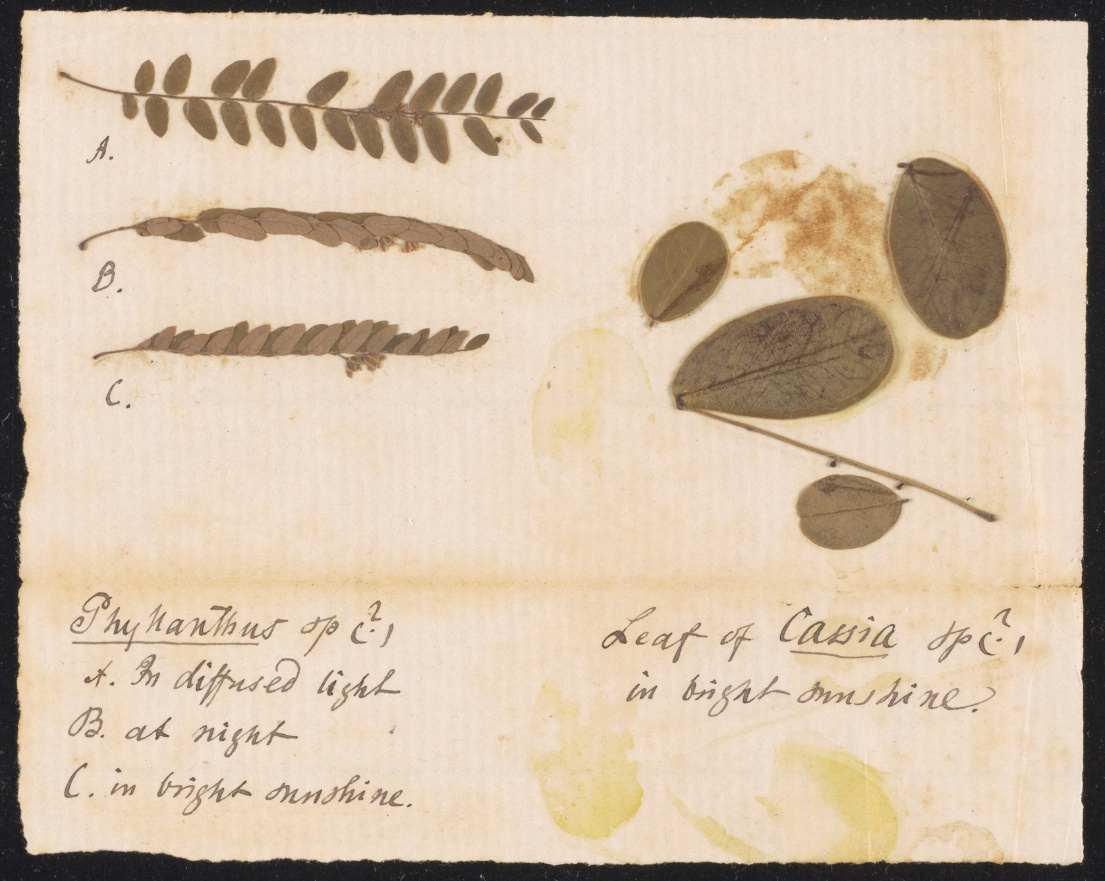 A.
B.
C.
Phyllanthus sp
A. In diffused light
B. at night
C. in bright sunshine.
Leaf of Cassia sp
in bright sunshine.